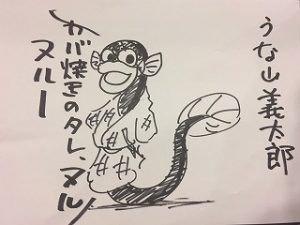 うな山義太郎
かば焼きのタレ、ヌル
ヌルー